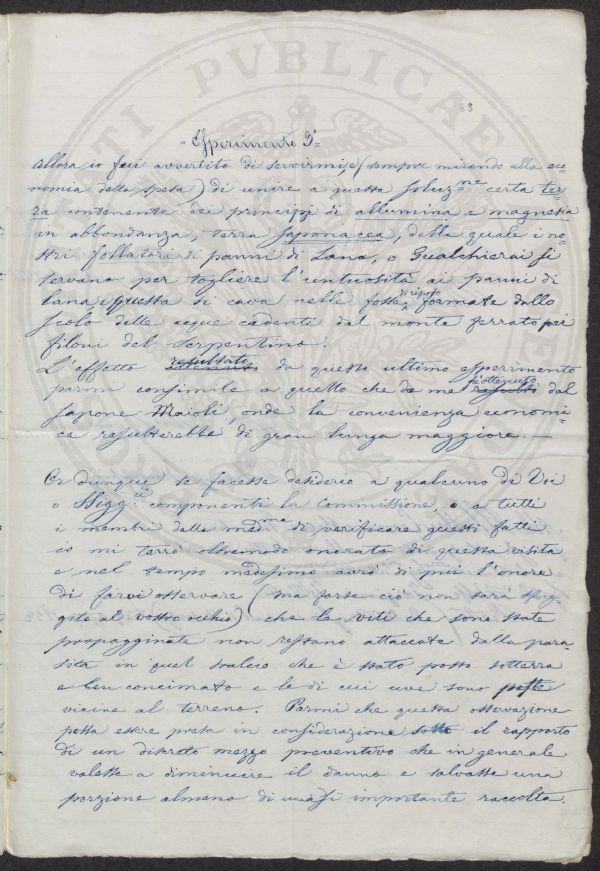 83
Esperimento 3°
Allora io fui avvertito di servirmi, (sempre mirando alla eco=
nomia della spesa) di unire a questa soluzne certa ter=
ra contenente dei principj di allumina e magnesia
in abbondanza, terra saponacea, della quale i no=
stri follatori di panni di Lana, o Gualchierai si
servano per togliere l'untuosità ai panni di
lana, e questa si cava nelle fosse di riposo formate dallo
scolo delle acque cadenti dal monte ferrato pei
filoni del Serpentino.
L'effetto resultato da questo ultimo esperimento
parmi consimile a quello che da me fu ottenuto dal
sapone Maioli, onde la convenienza economi=
ca resulterebbe di gran lunga maggiore. —
Or dunque se facesse desiderio a qualcuno di Voi
o SSigg.ri componenti la Commissione, o a tutti
i membri della medma di verificare questi fatti
io mi terrò oltremodo onorato di questa visita
e nel tempo medesimo avrò di più l'onore
di farvi osservare (ma forse ciò non sarà sfug=
gito al vostro occhio) che le viti che sono state
propagginate non restano attaccate dalla para=
sita in quel tralcio che è stato posto sotterra
e ben concimato e le di cui uve sono poste
vicine al terreno. Parmi che questa osservazione
possa essere presa in considerazione sotto il rapporto
di un discreto mezzo preventivo che in generale
valesse a diminuire il danno e salvasse una
porzione almeno di una sì importante raccolta.